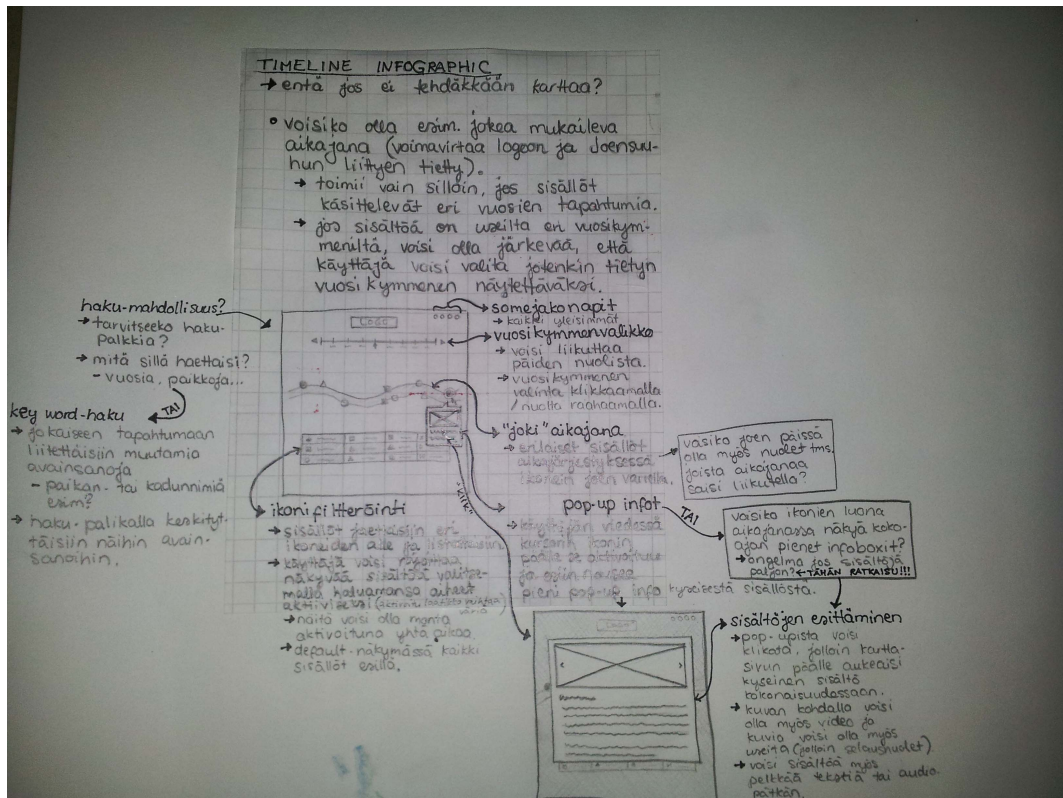 TIMELINE INFOGRAPHIC
→ entä jos ei tehdäkkään karttaa?
• voisiko olla esim. jokea mukaileva
aikajana (voimavirtaa logoon ja Joensuu-
hun liittyen tietty).
→ toimii vain silloin, jos sisällöt
käsittelevät eri vuosien tapahtumia.
→ jos sisältöä on useilta eri vuosikym-
meniltä, voisi olla järkevää, että
käyttäjä voisi valita jotenkin tietyn
vuosikymmenen näytettäväksi.
haku-mahdollisuus?
→ tarvitseeko haku-
palkkia?
→ mitä sillä haettaisi?
- vuosia, paikkoja...
TAI
key word-haku
→ jokaiseen tapahtumaan
liitettäisiin muutamia
avainsanoja
- paikan- tai kadunnimiä
esim?
→ haku-palikalla keskityt-
täisiin näihin avain-
sanoihin.
LOGO
somejakonapit
→ kaikki yleisimmät
vuosikymmenvalikko
→ voisi liikuttaa
päiden nuolista.
→ vuosikymmenen
valinta klikkaamalla
/nuolta raahaamalla.
"joki" aikajana
→ erilaiset sisällöt
aikajärjestyksessä
ikonein joen varrella.
voisiko joen päissä
olla myös nuolet tms.
joista aikajanaa
saisi liikutella?
ikonifiltteröinti
→ sisällöt jaettaisiin eri
ikoneiden alle ja
→ käyttäjä voisi rajoittaa
näkyvää sisältöä valitse-
malla haluamansa aiheet
aktiiviseksi
→ näitä voisi olla monta
aktivoituna yhtä aikaa
→ default-näkymässä kaikki
sisällöt esillä.
"KLIK"
pop-up infot
→ käyttäjän viedessä
kursorin ikonin
päälle se aktivoituu
ja esiin nousee
pieni pop-up info kyseisestä sisällöstä.
TAI
voisiko ikonien luona
aikajanassa näkyä koko-
ajan pienet infoboxit?
→ ongelma jos sisältöjä
paljon? ← TÄHÄN RATKAISU!!!
sisältöjen esittäminen
→ pop-upista voisi
klikata, jolloin kartta-
sivun päälle aukeaisi
kyseinen sisältö
kokonaisuudessaan.
→ kuvan kohdalla voisi
olla myös video ja
kuvia voisi olla myös
useita (jolloin selausnuolet).
→ voisi sisältää myös
pelkkää tekstiä tai audio-
pätkän.
LOGO